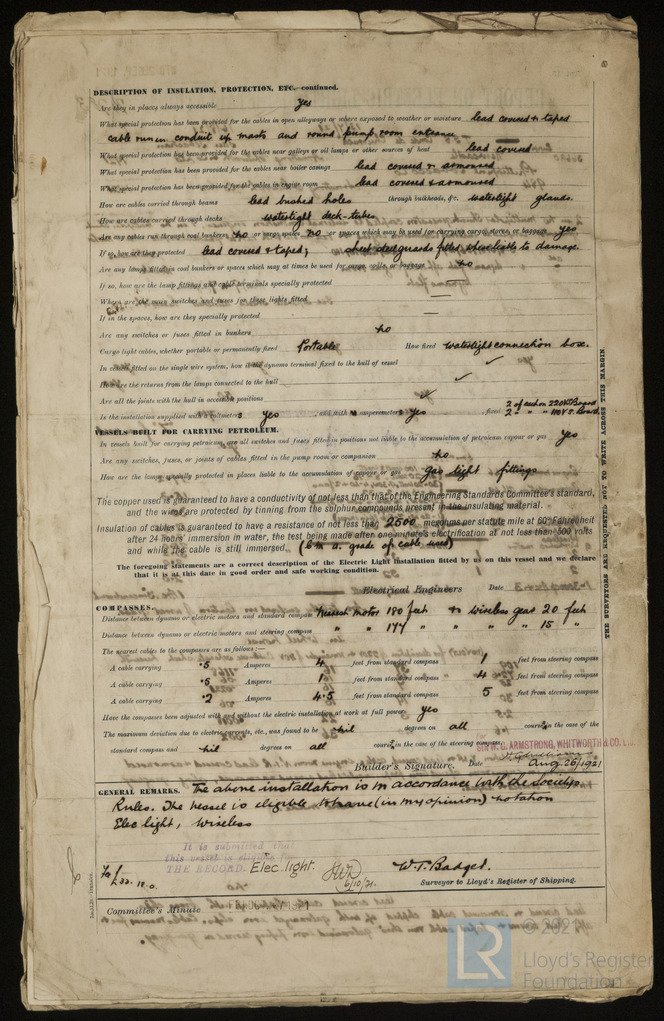 DESCRIPTION OF INSULATION, PROTECTION, ETC.—continued.
Are they in places always accessible yes
What special protection has been provided for the cables in open alleyways or where exposed to weather or moisture lead covered & taped
cable run in conduit up masts and round pump room entrance
What special protection has been provided for the cables near galleys or oil lamps or other sources of heat lead covered
What special protection has been provided for the cables near boiler casings lead covered & armoured
What special protection has been provided for the cables in engine room lead covered & armoured
How are cables carried through beams lead bushed holes through bulkheads, &c. watertight glands.
How are cables carried through decks watertight deck-tubes
Are any cables run through coal bunkers no or cargo spaces no or spaces which may be used for carrying cargo, stores, or baggage yes
If so, how are they protected lead covered & taped; sheet steel guards fitted where liable to damage.
Are any lamps fitted in coal bunkers or spaces which may at times be used for cargo, coals, or baggage no
If so, how are the lamp fittings and cable terminals specially protected
Where are the main switches and fuses for these lights fitted —
If in the spaces, how are they specially protected —
Are any switches or fuses fitted in bunkers no
Cargo light cables, whether portable or permanently fixed Portable How fixed watertight connection box.
In vessels fitted on the single wire system, how is the dynamo terminal fixed to the hull of vessel
How are the returns from the lamps connected to the hull
Are all the joints with the hull in accessible positions
In the installation supplied with a voltmeter s yes and with amperemeter s yes, fixed 2 of each on 220V. Board
2 " " " 110 V. S. Board
VESSELS BUILT FOR CARRYING PETROLEUM.
In vessels built for carrying petroleum, are all switches and fuses fitted in positions not liable to the accumulation of petroleum vapour or gas yes
Are any switches, fuses, or joints of cables fitted in the pump room or companion no
How are the lamps specially protected in places liable to the accumulation of vapour or gas Gas tight fittings
The copper used is guaranteed to have a conductivity of not less than that of the Engineering Standards Committee's standard,
and the wires are protected by tinning from the sulphur compounds present in the insulating material.
Insulation of cables is guaranteed to have a resistance of not less than 2500 megohms per statute mile at 60° Fahrenheit
after 24 hours' immersion in water, the test being made after one minute's electrification at not less than 500 volts
and while the cable is still immersed. grade of cable used)
The foregoing statements are a correct description of the Electric Light installation fitted by us on this vessel and we declare
that it is at this date in good order and safe working condition.
Electrical Engineers Date
COMPASSES.
Distance between dynamo or electric motors and standard compass Nearest motor 180 feet & wireless gear 20 feet
Distance between dynamo or electric motors and steering compass " " 174 " " " " 15 "
The nearest cables to the compasses are as follows:—
A cable carrying .5 Amperes 4 feet from standard compass 1 feet from steering compass
A cable carrying .5 Amperes 1 feet from standard compass 4 feet from steering compass
A cable carrying .2 Amperes 4.5 feet from standard compass 5 feet from steering compass
Have the compasses been adjusted with and without the electric installation at work at full power yes
The maximum deviation due to electric currents, etc., was found to be nil degrees on all course in the case of the
standard compass and nil degrees on all course in the case of the steering compass.
For
SIR W. G. ARMSTRONG, WHITWORTH & CO. LTD.
Builder's Signature. Date Aug. 26/1921
GENERAL REMARKS. The above installation is in accordance with the Society's
Rules. The vessel is eligible to have (in my opinion) notation
Elec light, wireless
It is submitted that
this vessel is eligible for
THE RECORD. Elec. light.
6/10/21.
W. T. Badget.
Surveyor to Lloyd's Register of Shipping.
Committee's Minute
THE SURVEYORS ARE REQUESTED NOT TO WRITE ACROSS THIS MARGIN.
LR
© 2021
Lloyd's Register
Foundation